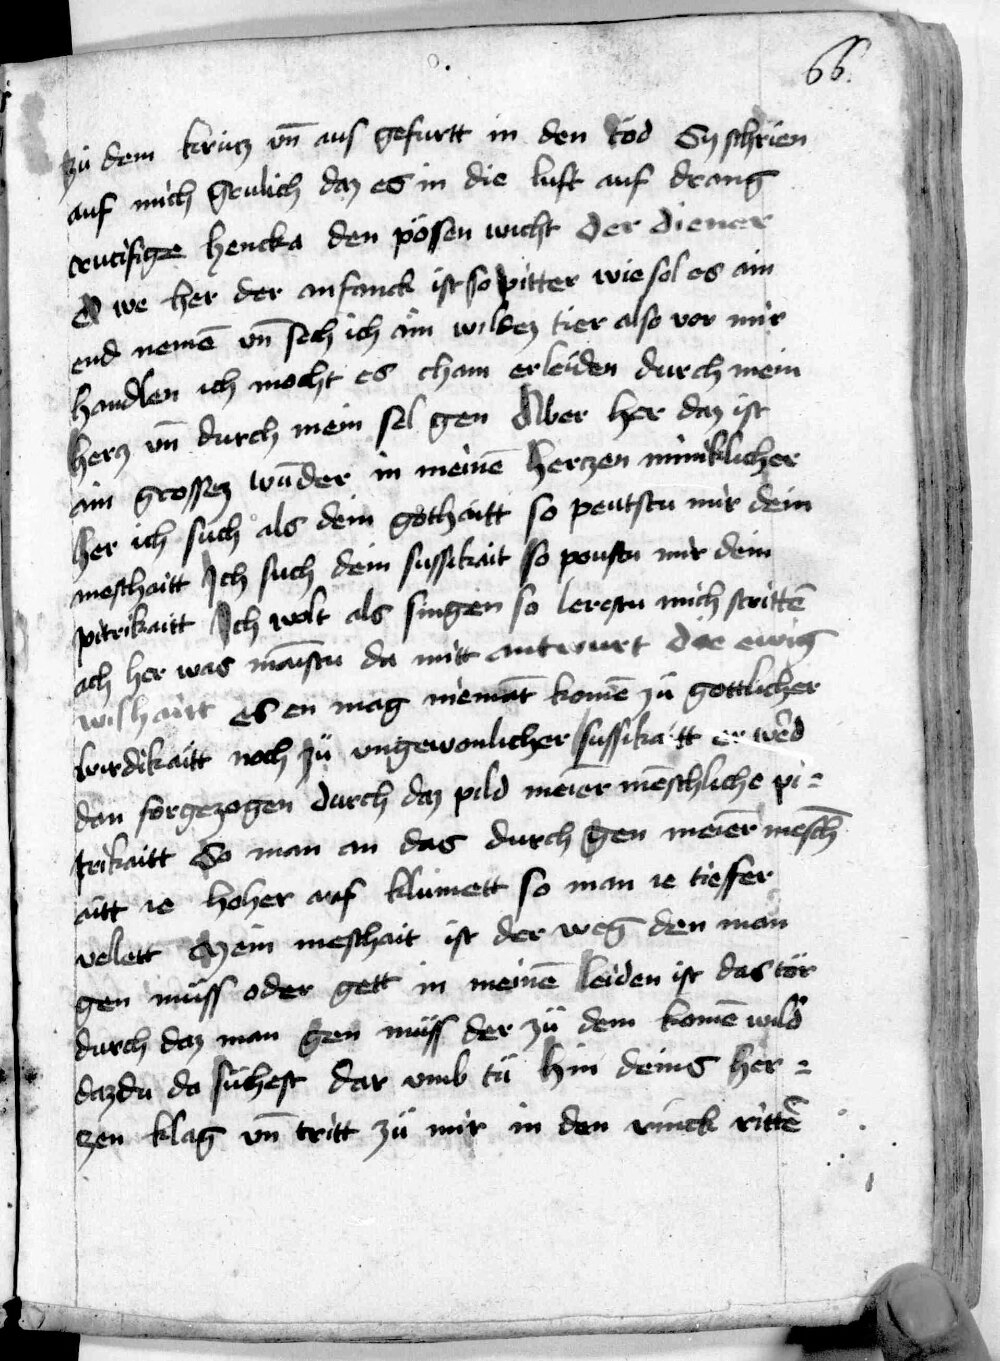 66.
zü dem krücz vn̄ aus gefurtt in den töd Sy schrien
auf mich grulich daz es in die luft auf drang
crucifige hencka den pösen wicht der diener
O we her der anfanck ist so pitter wie sol es ain
end nemē vn̄ sech ich ain wildez tier also vor mir
handlen ich mocht es cham erleiden durch mein
hercz vn̄ durch mein sel gen Aber her daz ist
ain grossez wūder in meinē herczen miniklicher
her ich such als dein gothaitt so peutstu mir dein
meschaitt Ich such dein sussikait so peustu mir dein
pitrikaitt Ich wolt als singen so lerestu mich strittē
ach her was mainstu da mitt antwurt die ewig
wishaitt es en mag niemāt komē zü gottlicher
wirdikaitt noch zü vngewonlicher sussikaitt er wēd
dan forgezogen durch daz pild meīer mēschliche pi=
trikaitt So man an das durch gen meīer mesch
aitt ie hoher auf klimett so man ie tieffer
velett Mein meschait ist der weg den man
gen müss oder gett in meinē leiden ist das tör
durch daz man gen müss der zü dem komē wild
daz du da sühest dar vmb tü hin deins her=
zen klag vn̄ tritt zü mir in den rinck rittē